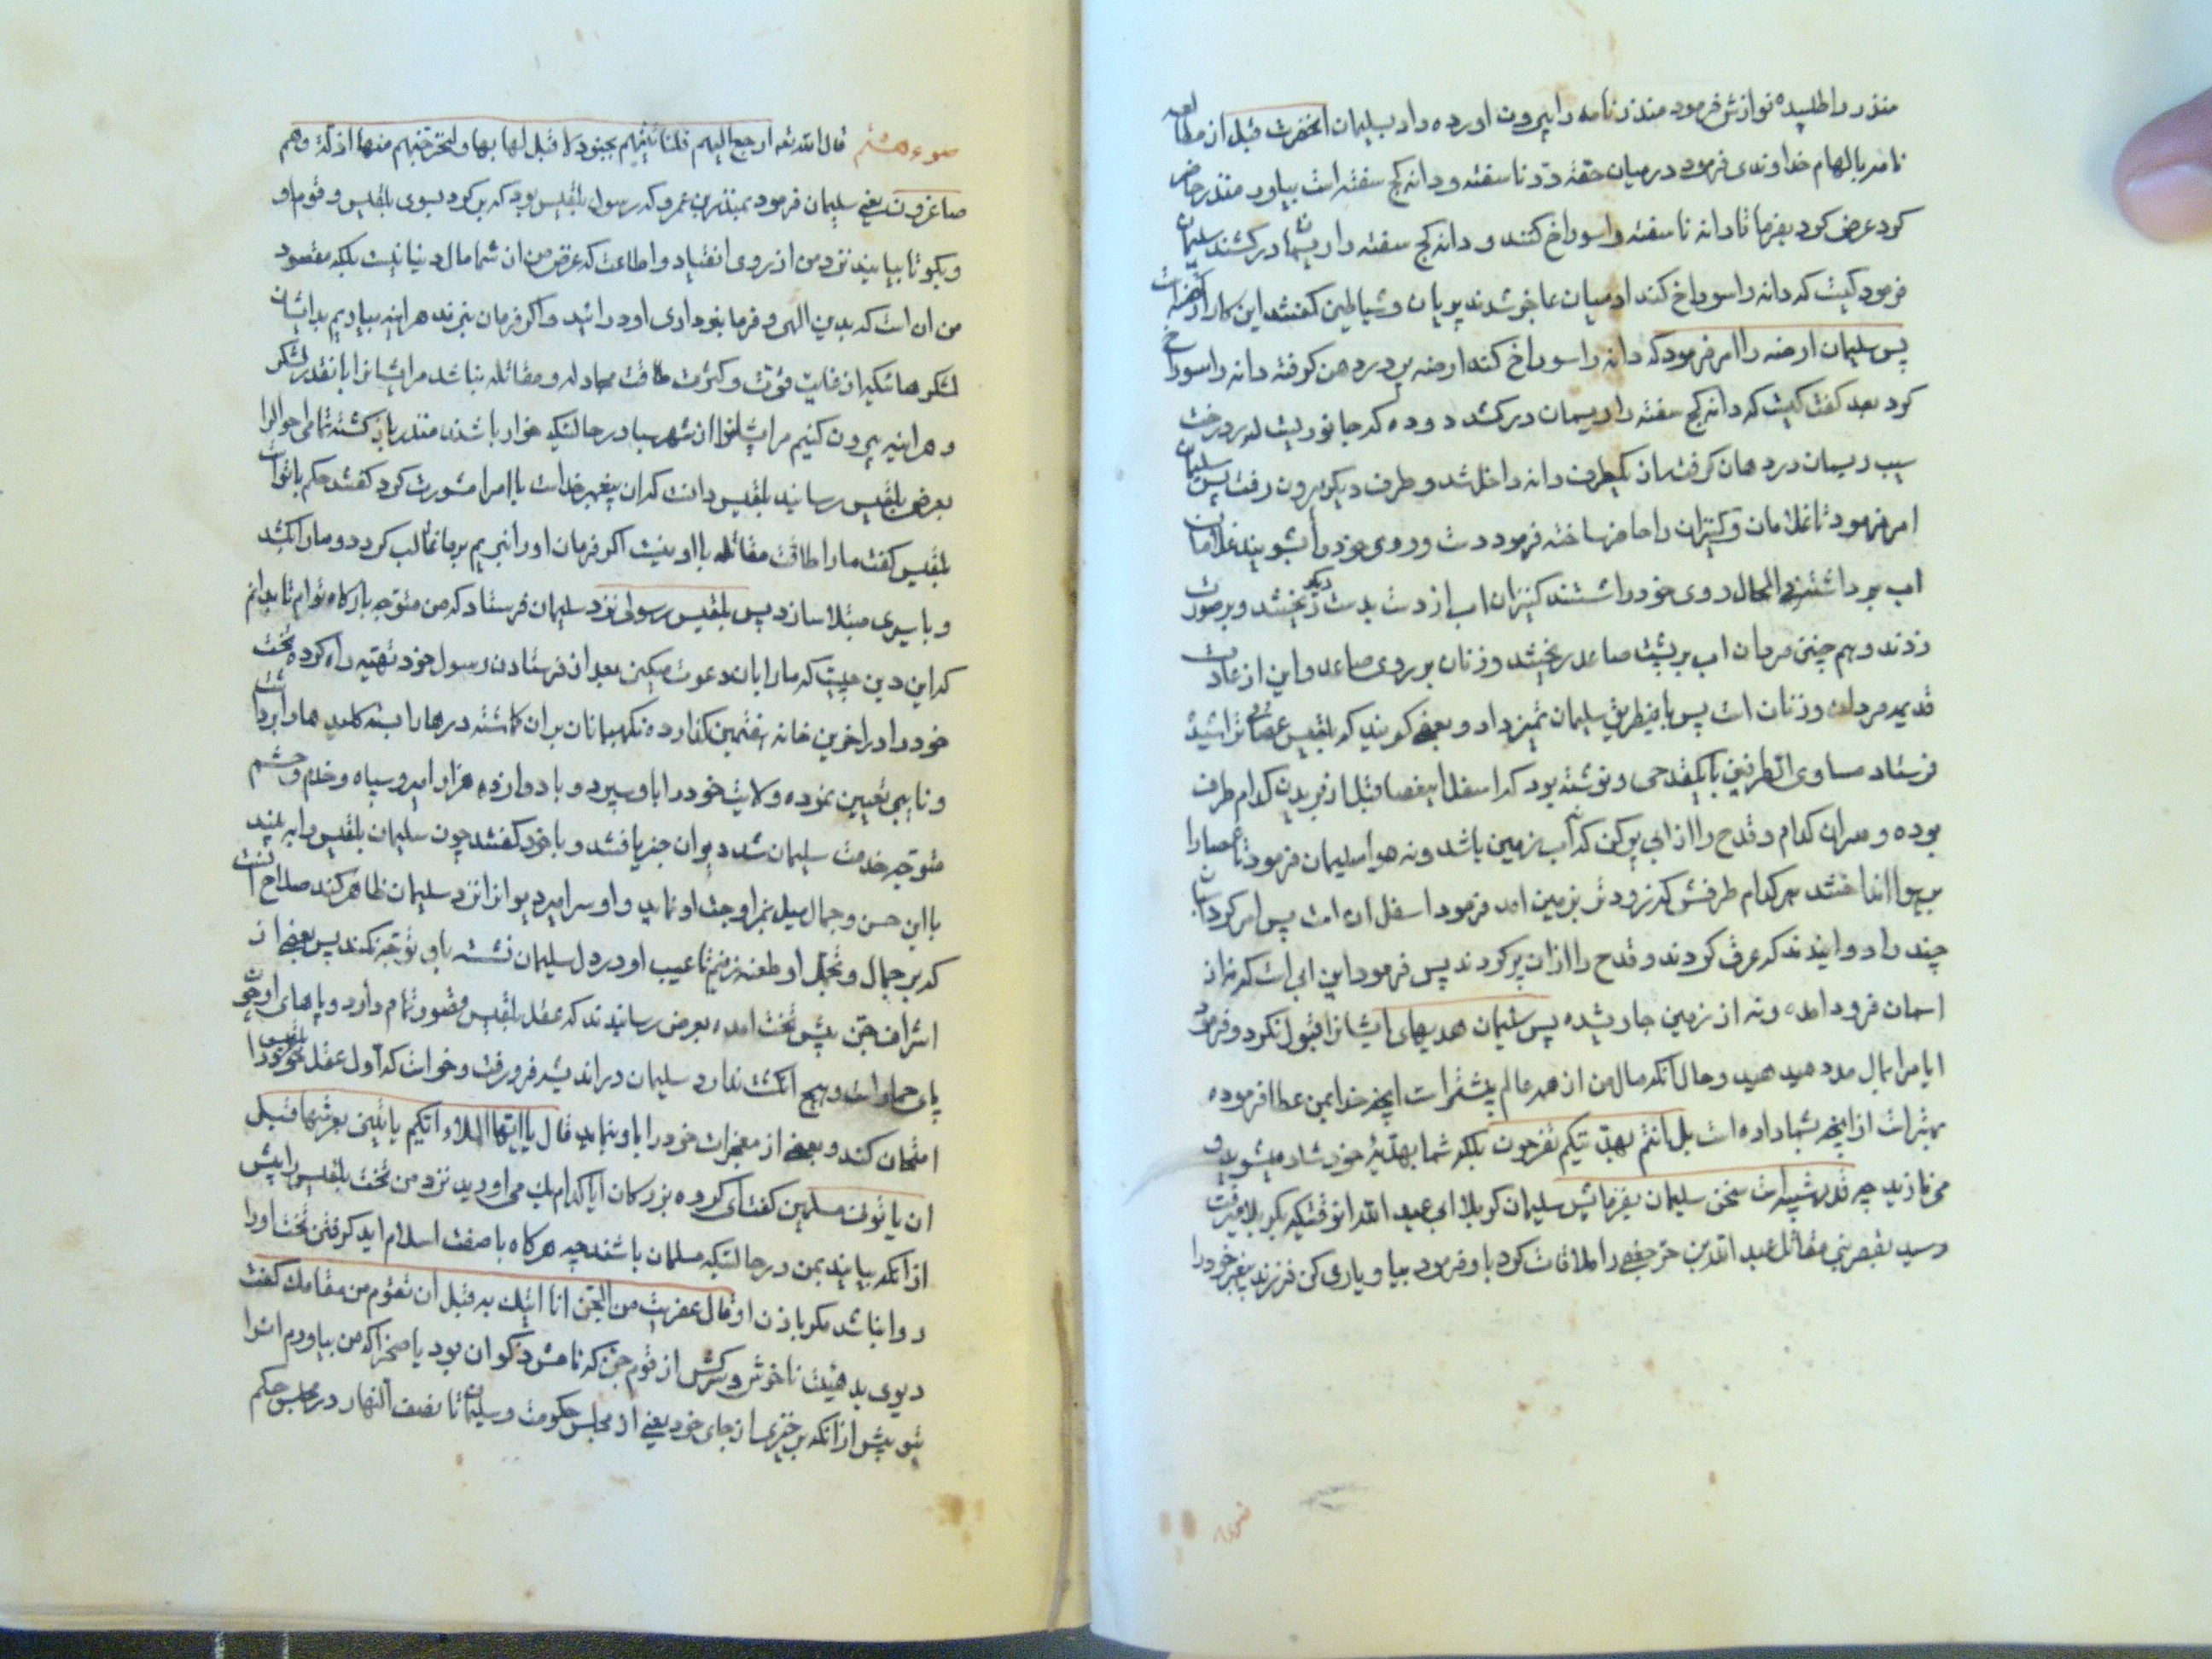 منذر را طلبیده نوازش فرمود منذر نامه را بیرون اورده داد بسلیمان انحضرت قبل از مطالعه
نامه بالهام خداوندی فرمود در میان حقه در ناسفته و دانه کج سفته است بیاور منذر حاضر
کرد عرض کرد بفرما تا دانه ناسفته را سوراخ کنند و دانه کج سفته را ریسمان درکشند سلیمان
فرمود کیست که دانه را سوراخ کند ادمیان عاجز شدند پریان و شیاطین گفتند این کار ارضه است
پس سلیمان ارضه را امر فرمود که دانه را سوراخ کند ارضه در دهن گرفته دانه را سوراخ
کرد بعد گفت کیست که دانه کج سفته را ریسمان درکشد دوده که جانوریست در درخت
سیب ریسمان در دهان گرفته از یکطرف دانه داخل شد و طرف دیگر بیرون رفت پس سلیمان
امر فرمود تا غلامان و کنیزان را حاضر ساخته فرمود دست و روی خود را بشویند غلامان
اب برداشتند فی الحال روی خود را شستند کنیزان اب از دست بدست دیگر ریختند و بر صورت
زدند و هم چنین مردان اب بر پشت ساعد ریختند و زنان بر روی ساعد و این از عادت
قدیمه مردان و زنان است پس باینطریق سلیمان تمیز داد و بعضی گویند که بلقیس عصای تراشیده
فرستاد مساوی الطرفین با یکقدحی و نوشته بود که اسفل اینعصا قبل از بریدن کدام طرف
بوده و سران کدام و قدح را از ابی پر کن که نه اب زمین باشد و نه هوا سلیمان فرمود تا عصا را
بر هوا انداختند هر کدام طرفش که زودتر بزمین امد فرمود اسفل ان است پس امر کرد اسبان
چند را دوانیدند که عرق کردند و قدح را از ان پر کردند پس فرمود این ابی است که نه از
اسمان فرود امده و نه از زمین جاری شده پس سلیمان هدیهای ایشانرا قبول نکرد و فرمود
ایا مرا بمال مدد میدهید و حال آنکه مال من از همه عالم بیشتر است انچه خدا بمن عطا فرموده
بهتر است از انچه بشما داده است بل انتم بهدیتکم تفرحون بلکه شما بهدیهٔ خود شاد میشوید و
می نازید چه قدر شبیه است سخن سلیمان بفرمایش سلیمان کربلا ابی عبد الله انوقتیکه بکربلا میرفت
رسید بقصر بنی مقاتل عبد الله بن حر جعفی را ملاقات کرد باو فرمود بیا و یاری کن فرزند پیغمبر خود را
ضوء هشتم قال الله تعه ارجع الیهم فلناتینهم بجنود لا قبل لها بها و لنخرجنهم منها اذلة و هم
صاغرون یعنی سلیمان فرمود بمنذر بن عمرو که رسول بلقیس بود که برگرد بسوی بلقیس و قوم او
و بگو تا بیایند نزد من از روی انقیاد و اطاعت که غرض من از شما مال دنیا نیست بلکه مقصود
من ان است که بدین الهی و فرمانبرداری او درائید و اگر فرمان نبرند هراینه بیاریم بدایشان
لشکرهائیکه از غایت قوت و کثرت طاقت مجادله و مقاتله نباشد مر ایشانرا بانقدر لشکر
و هراینه بیرون کنیم مر ایشانرا از شهر سبا در حالتیکه خوار باشند منذر بازگشته تمامی احوالرا
بعرض بلقیس رسانید بلقیس دانست که ان پیغمبر خداست با امرا مشورت کرد گفتند حکم با تو است
بلقیس گفت ما را طاقت مقاتله با او نیست اگر فرمان او را نبریم بر ما غالب گردد و ما را بکشد
و باسیری مبتلا سازد پس بلقیس رسولی نزد سلیمان فرستاد که من متوجه بارگاه توام تا بدانم
که این دین چیست که ما را بان دعوت میکنی بعد از فرستادن رسول خود تهیه راه کرده تخت
خود را در اخرین خانه هفتمین گذارده نگهبانان بران گماشته درها را بسته کلیدها را برداشت
و نایبی تعیین نموده ولایت خود را باو سپرد و با دوازده هزار امیر و سپاه و خدم و حشم
متوجه خدمت سلیمان شد دیوان خبر یافتند و با خود گفتند چون سلیمان بلقیس را به بیند
با این حسن و جمال میل بمزاوجت او نماید و او سرامر دیوانرا نزد سلیمان ظاهر کند صلاح انست
که بر جمال و تجمل او طعنه زنیم تا عیب او در دل سلیمان نشسته باو توجه نکند پس بعضی از
اشراف جن پیش تخت امده بعرض رسانیدند که عقل بلقیس قصور تمام دارد و پاهای او چون
پای حمار است و هیچ انگشت ندارد سلیمان در اندیشه فرو رفت و خواست که اول عقل بلقیس را
امتحان کند و بعضی از معجزات خود را باو بنماید قال یا ایها الملاء ایکم یاتینی بعرشها قبل
ان یاتونی مسلمین گفت ای گروه بزرگان ایا کدام یک می اورید نزد من تخت بلقیس را پیش
از انکه بیایند بمن در حالتیکه مسلمان باشند چه هرگاه با صفت اسلام اید گرفتن تخت او را
روا نباشد مگر باذن او قال عفریت من الجن انا اتیک به قبل ان تقوم من مقامک گفت
دیوی بدهیئت ناخوش و سرکش از قوم جن که نامش ذکوان بود یا صخر که من بیاورم انرا
بتو پیش از انکه برخیزی از جای خود یعنی از مجلس حکومت و سلیمان تا نصف النهار در مجلس حکم